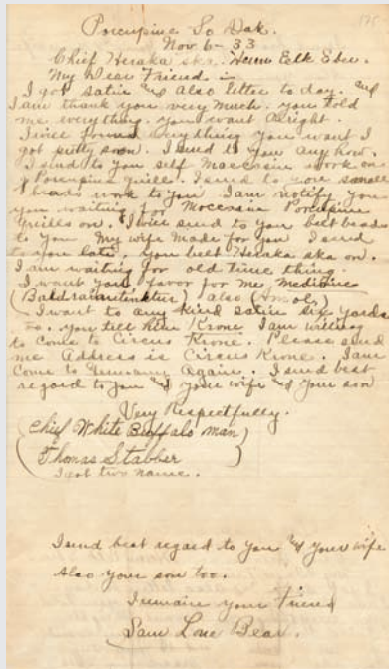 Porcupine So Dak.
Nov 6 - 33
Chief Heraka ska. Herrn Elk Eber.
My Dear Friend :-
I got satin and also letter to day. and
I am thank you very much. you told
me everything. you want alright.
I wice you everything you want I
got pretty soon. I send to you any how.
I send to you self Moccasin work on
Porcupine quills. I send to you small
beads work to you I am notify you
you waiting for Moccasin Porcupine
quills on. I wice send to your belt beads
to you My wife made for you I send
to you late, you belt Heraka ska on.
I am waiting for old time thing.
I want your favor for me medicine
(Baldriantinktur) also (Amol)
I want to any kind satin six yards
too. you tell herr Krone I am willing
to come to Circus Krone. Please send
me Address is Circus Krone. I am
come to Germany Again. I send best
regard to you and your wife and your son
Very Respectfully.
(Chief White Buffalo man)
(Thomas Stabber)
I got two name.
I send best regard to you and your wife
Also your son too.
I remain your Friend
Sam Lone Bear.